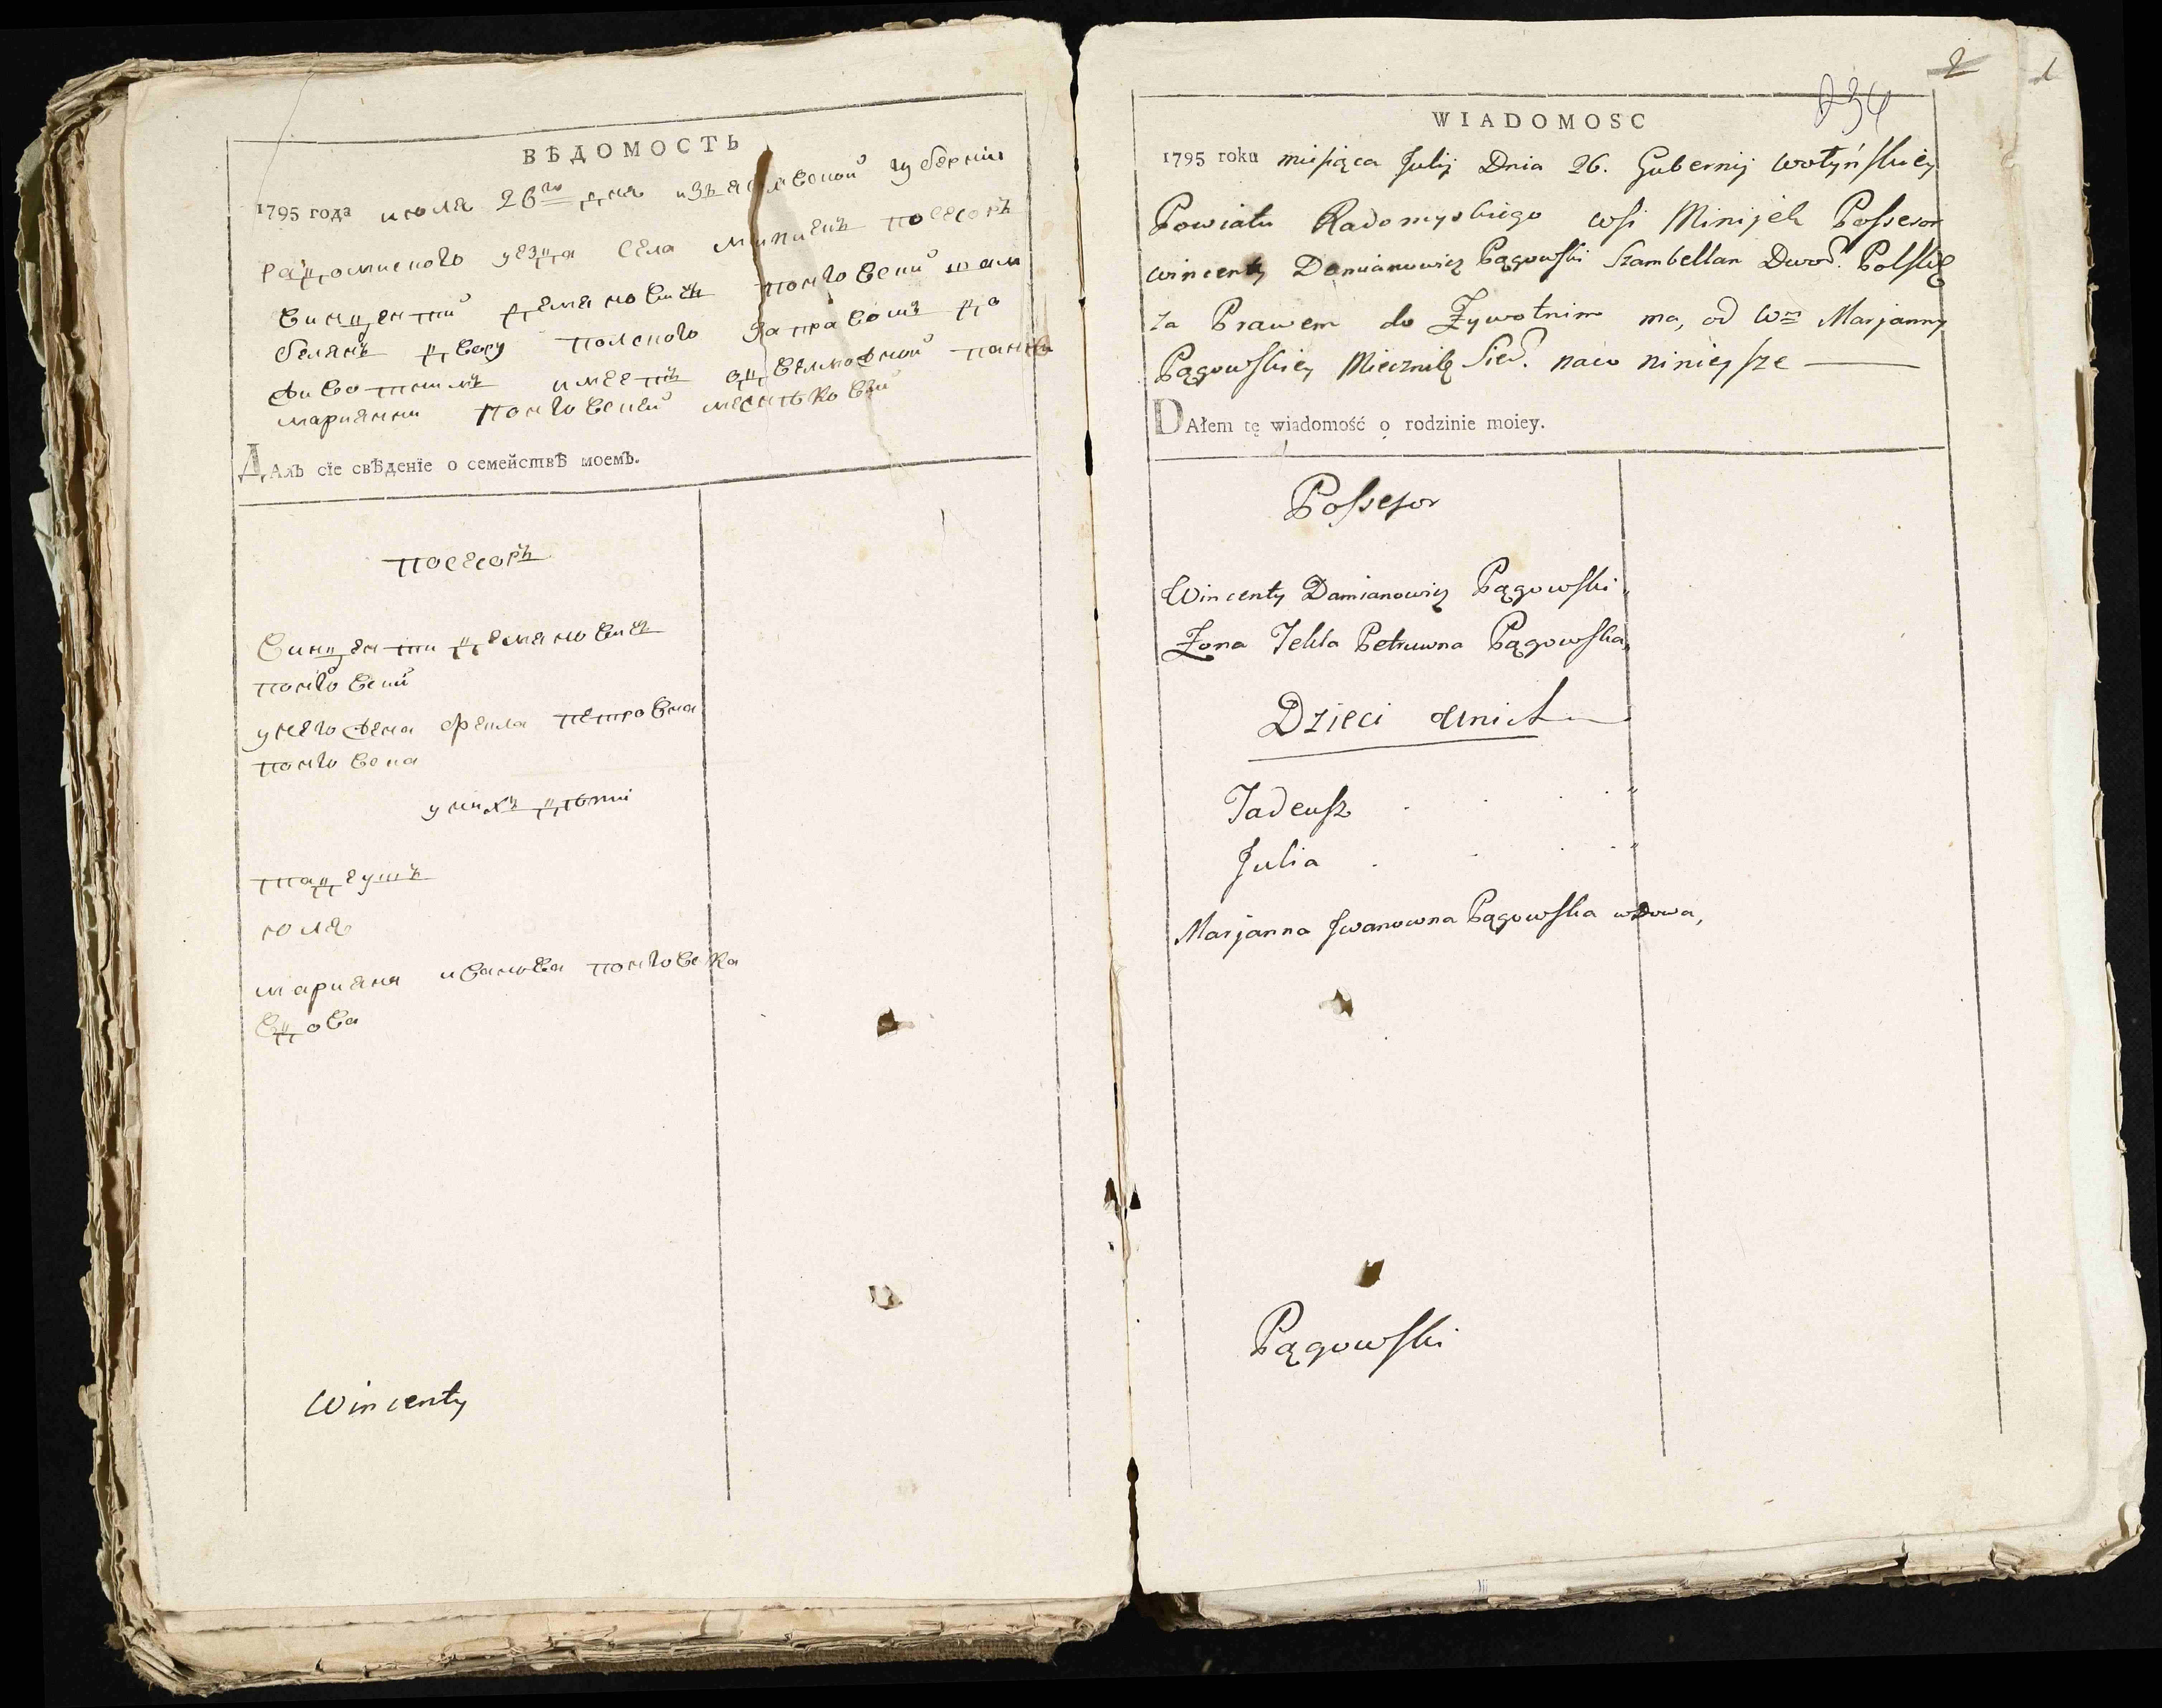 ВѢДОМОСТЬ
1795 года июля 26го дня изъяславской губернии
радомиского уезда села минијекъ посесоръ
винцентий демяновичъ понговский шам
белянъ двору полского заправомъ до
животнимъ имеетъ од велможной панны
марианни понговской
ДАлъ сїе свѣденїе о семействѣ моемъ.
посесоръ
винценти демяновичъ
понговский
унего жена фекла петровна
понговска
у нихъ дѣти
тадеушъ
юля
марияня иванова понговска
вдова
Wincenty
2
1
WIADOMOSC
1795 roku miesiąca Julij Dnia 26. Gubernij Wołyńskiey
Powiatu Radomyskiego wsi Minijek Possesor
Wincenty Demianowicz Pągowski Szambellan Dwoꝛ. Polskię
za Prawem do Zywotnim ma, od Wm Marjanny
Pągowskiey Miecznikę naio ninieysze
DAłem tę wiadomość o rodzinie moiey.
Possesor
Wincenty Damianowicz Pągowski,
Zona Tekla Petruwna Pągowska,
Dzieci Unich
Tadeusz . . . . "
Julia . . . . "
Marjanna Jwanowna Pągowska wdowa,
Pągowski